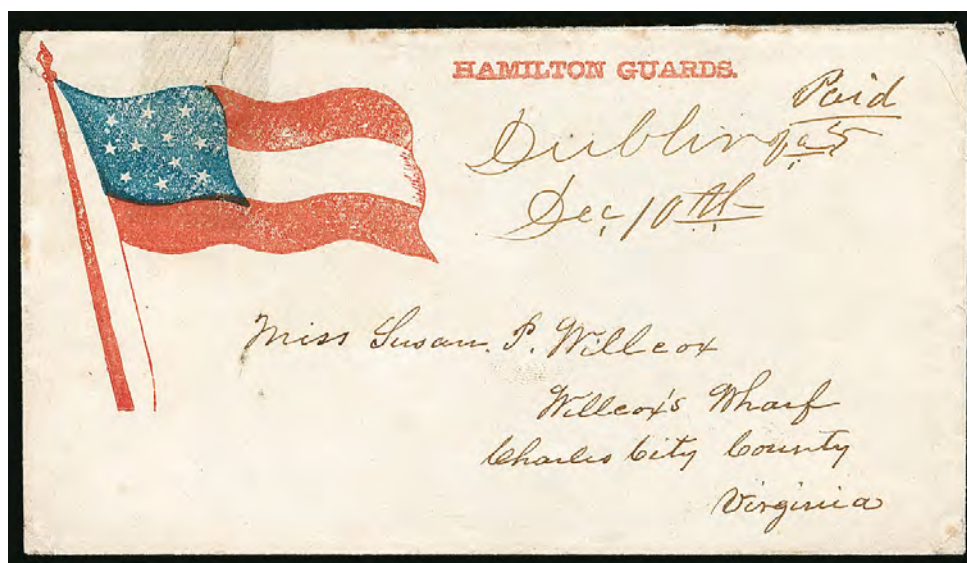 HAMILTON GUARDS.
Paid
Dublin Va 5
Dec 10th
Miss Susan. P. Willcox
Willcox's Wharf
Charles City County
Virginia